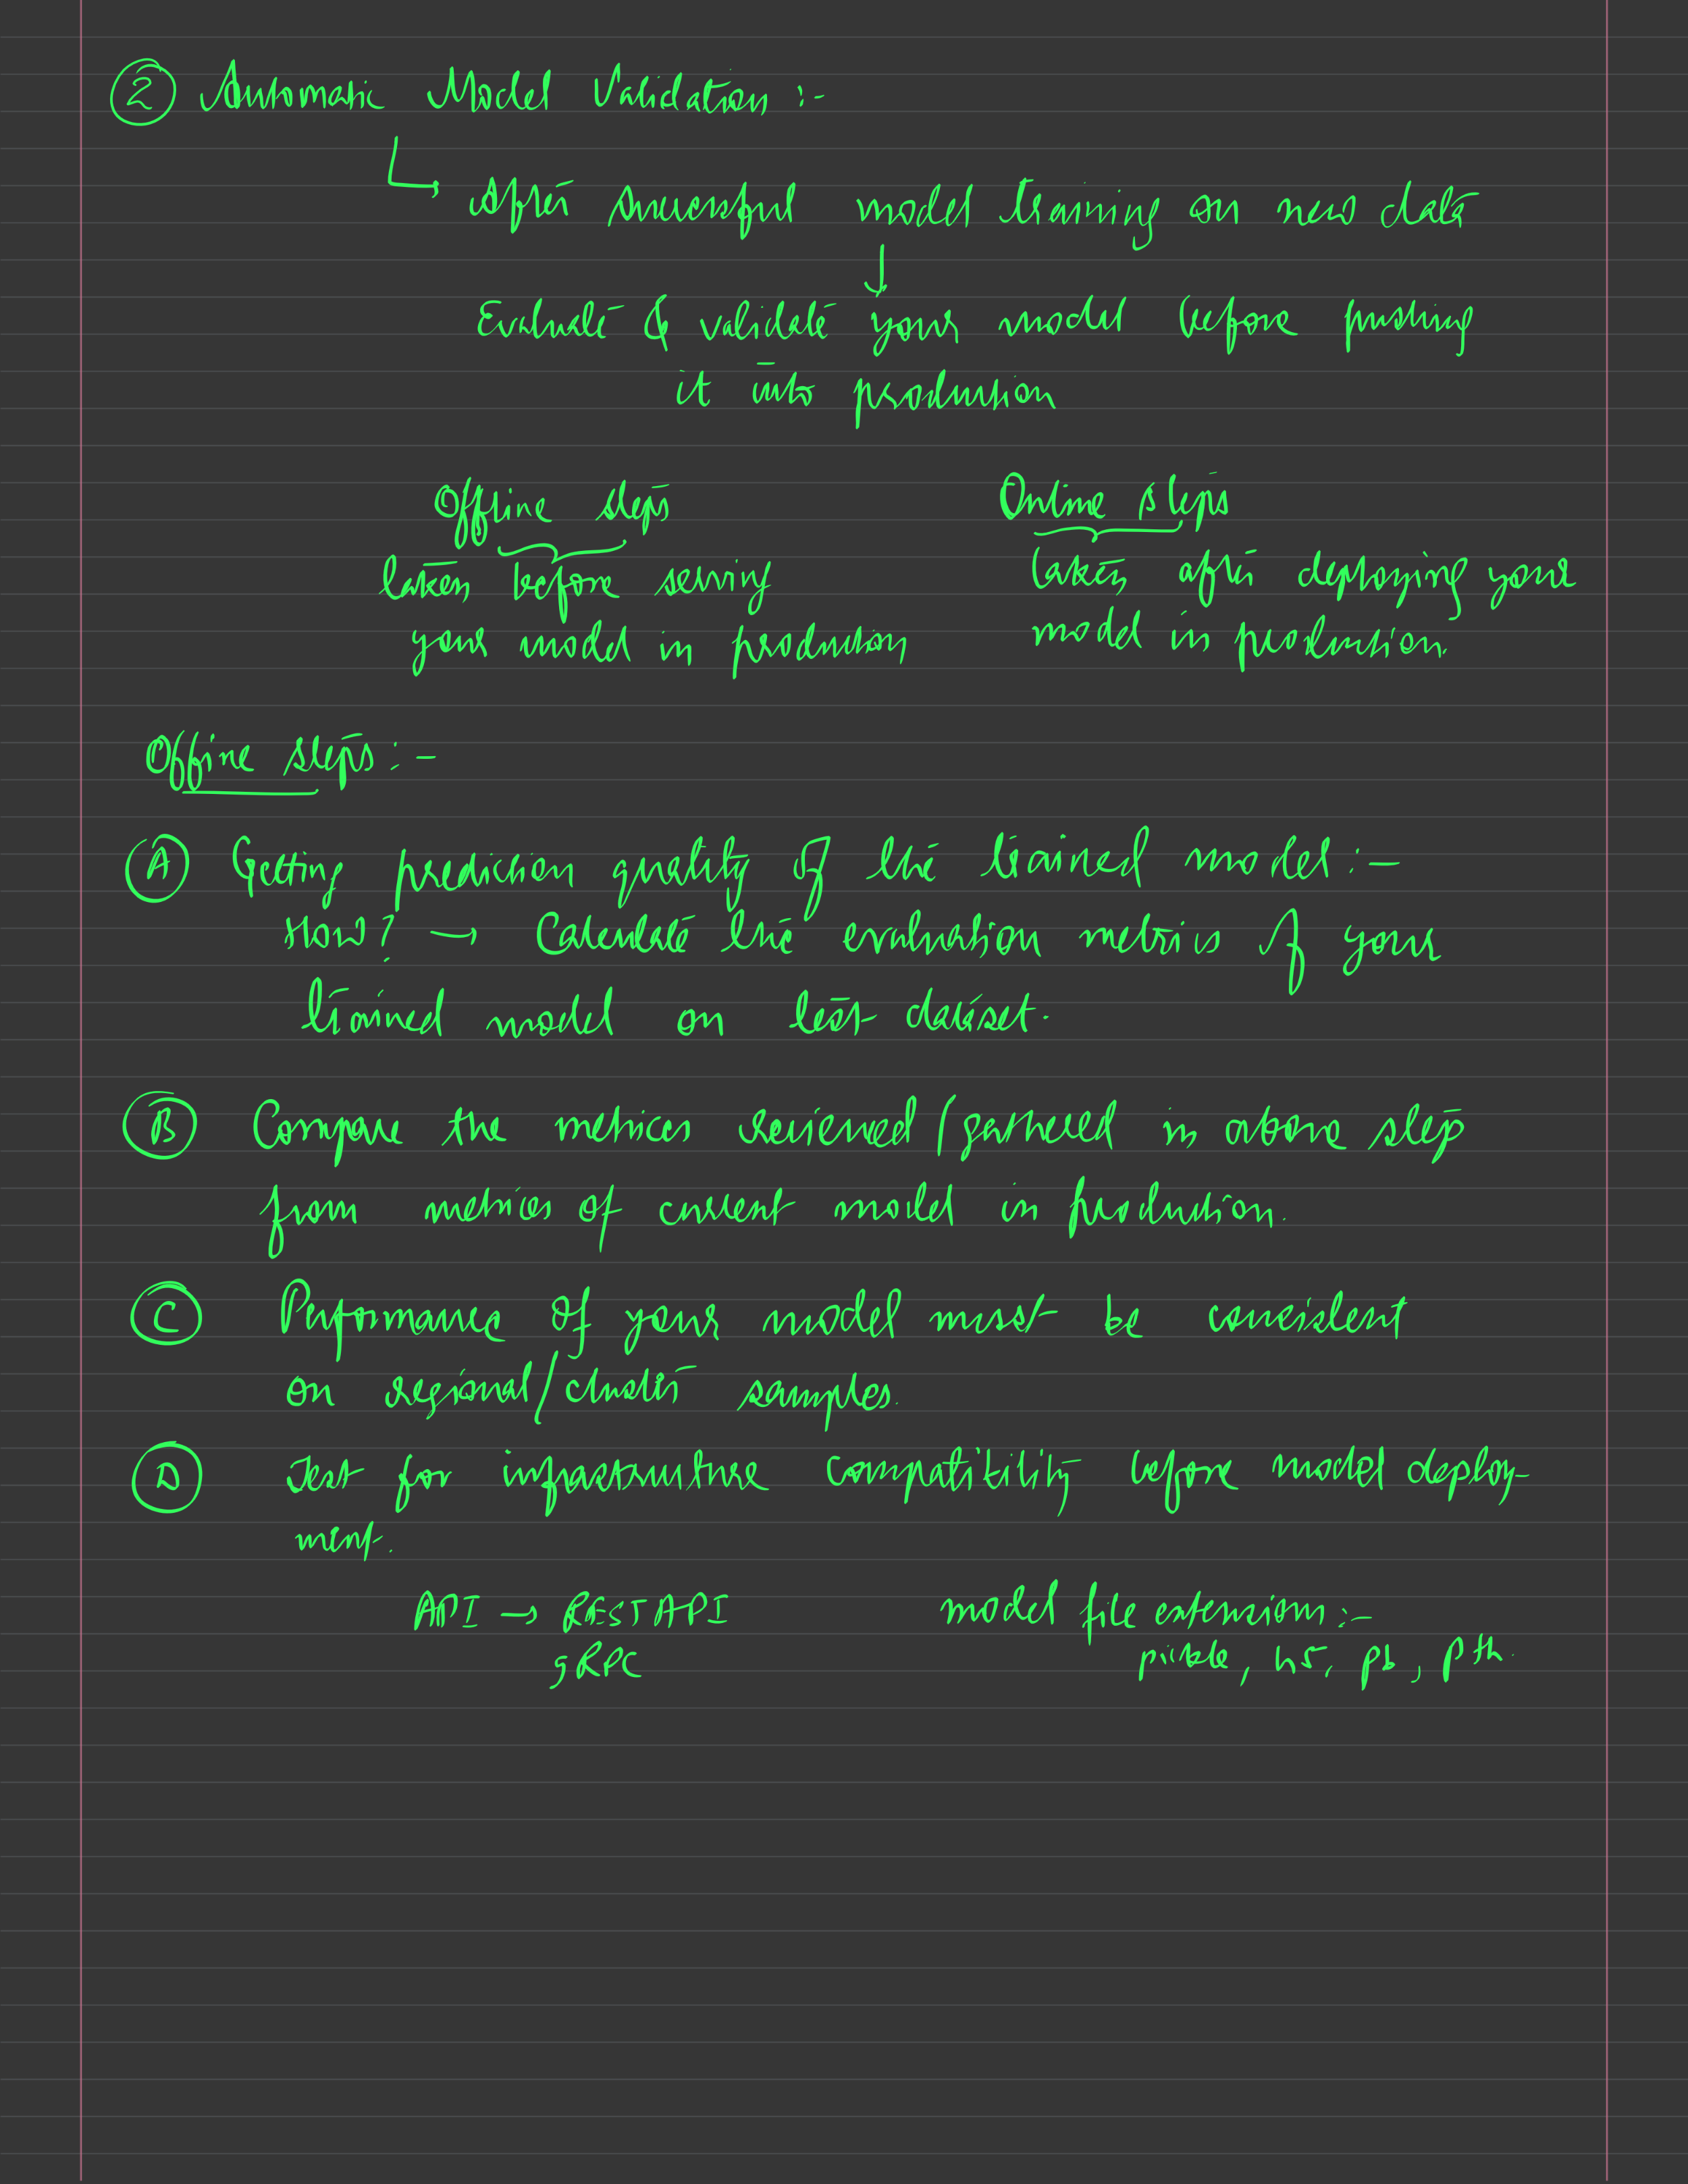 ② Automatic Model Validation :-
↳ After successful model training on new data
↓
Evaluate & validate your model before pushing
it into production
Offline steps Online steps
taken before serving taken after deploying your
your model in production model in production.
Offline steps :-
Ⓐ Getting prediction quality of the trained model :-
How? → Calculate the evaluation metrics of your
trained model on test dataset.
Ⓑ Compare the metrics recieved/gathered in above step
from metrics of current model in production.
Ⓒ Performance of your model must be consistent
on regional/cluster samples.
Ⓓ Test for infrastructure compatibility before model deploy-
ment.
API → REST API model file extension :-
gRPC pickle, h5, pb, pth.